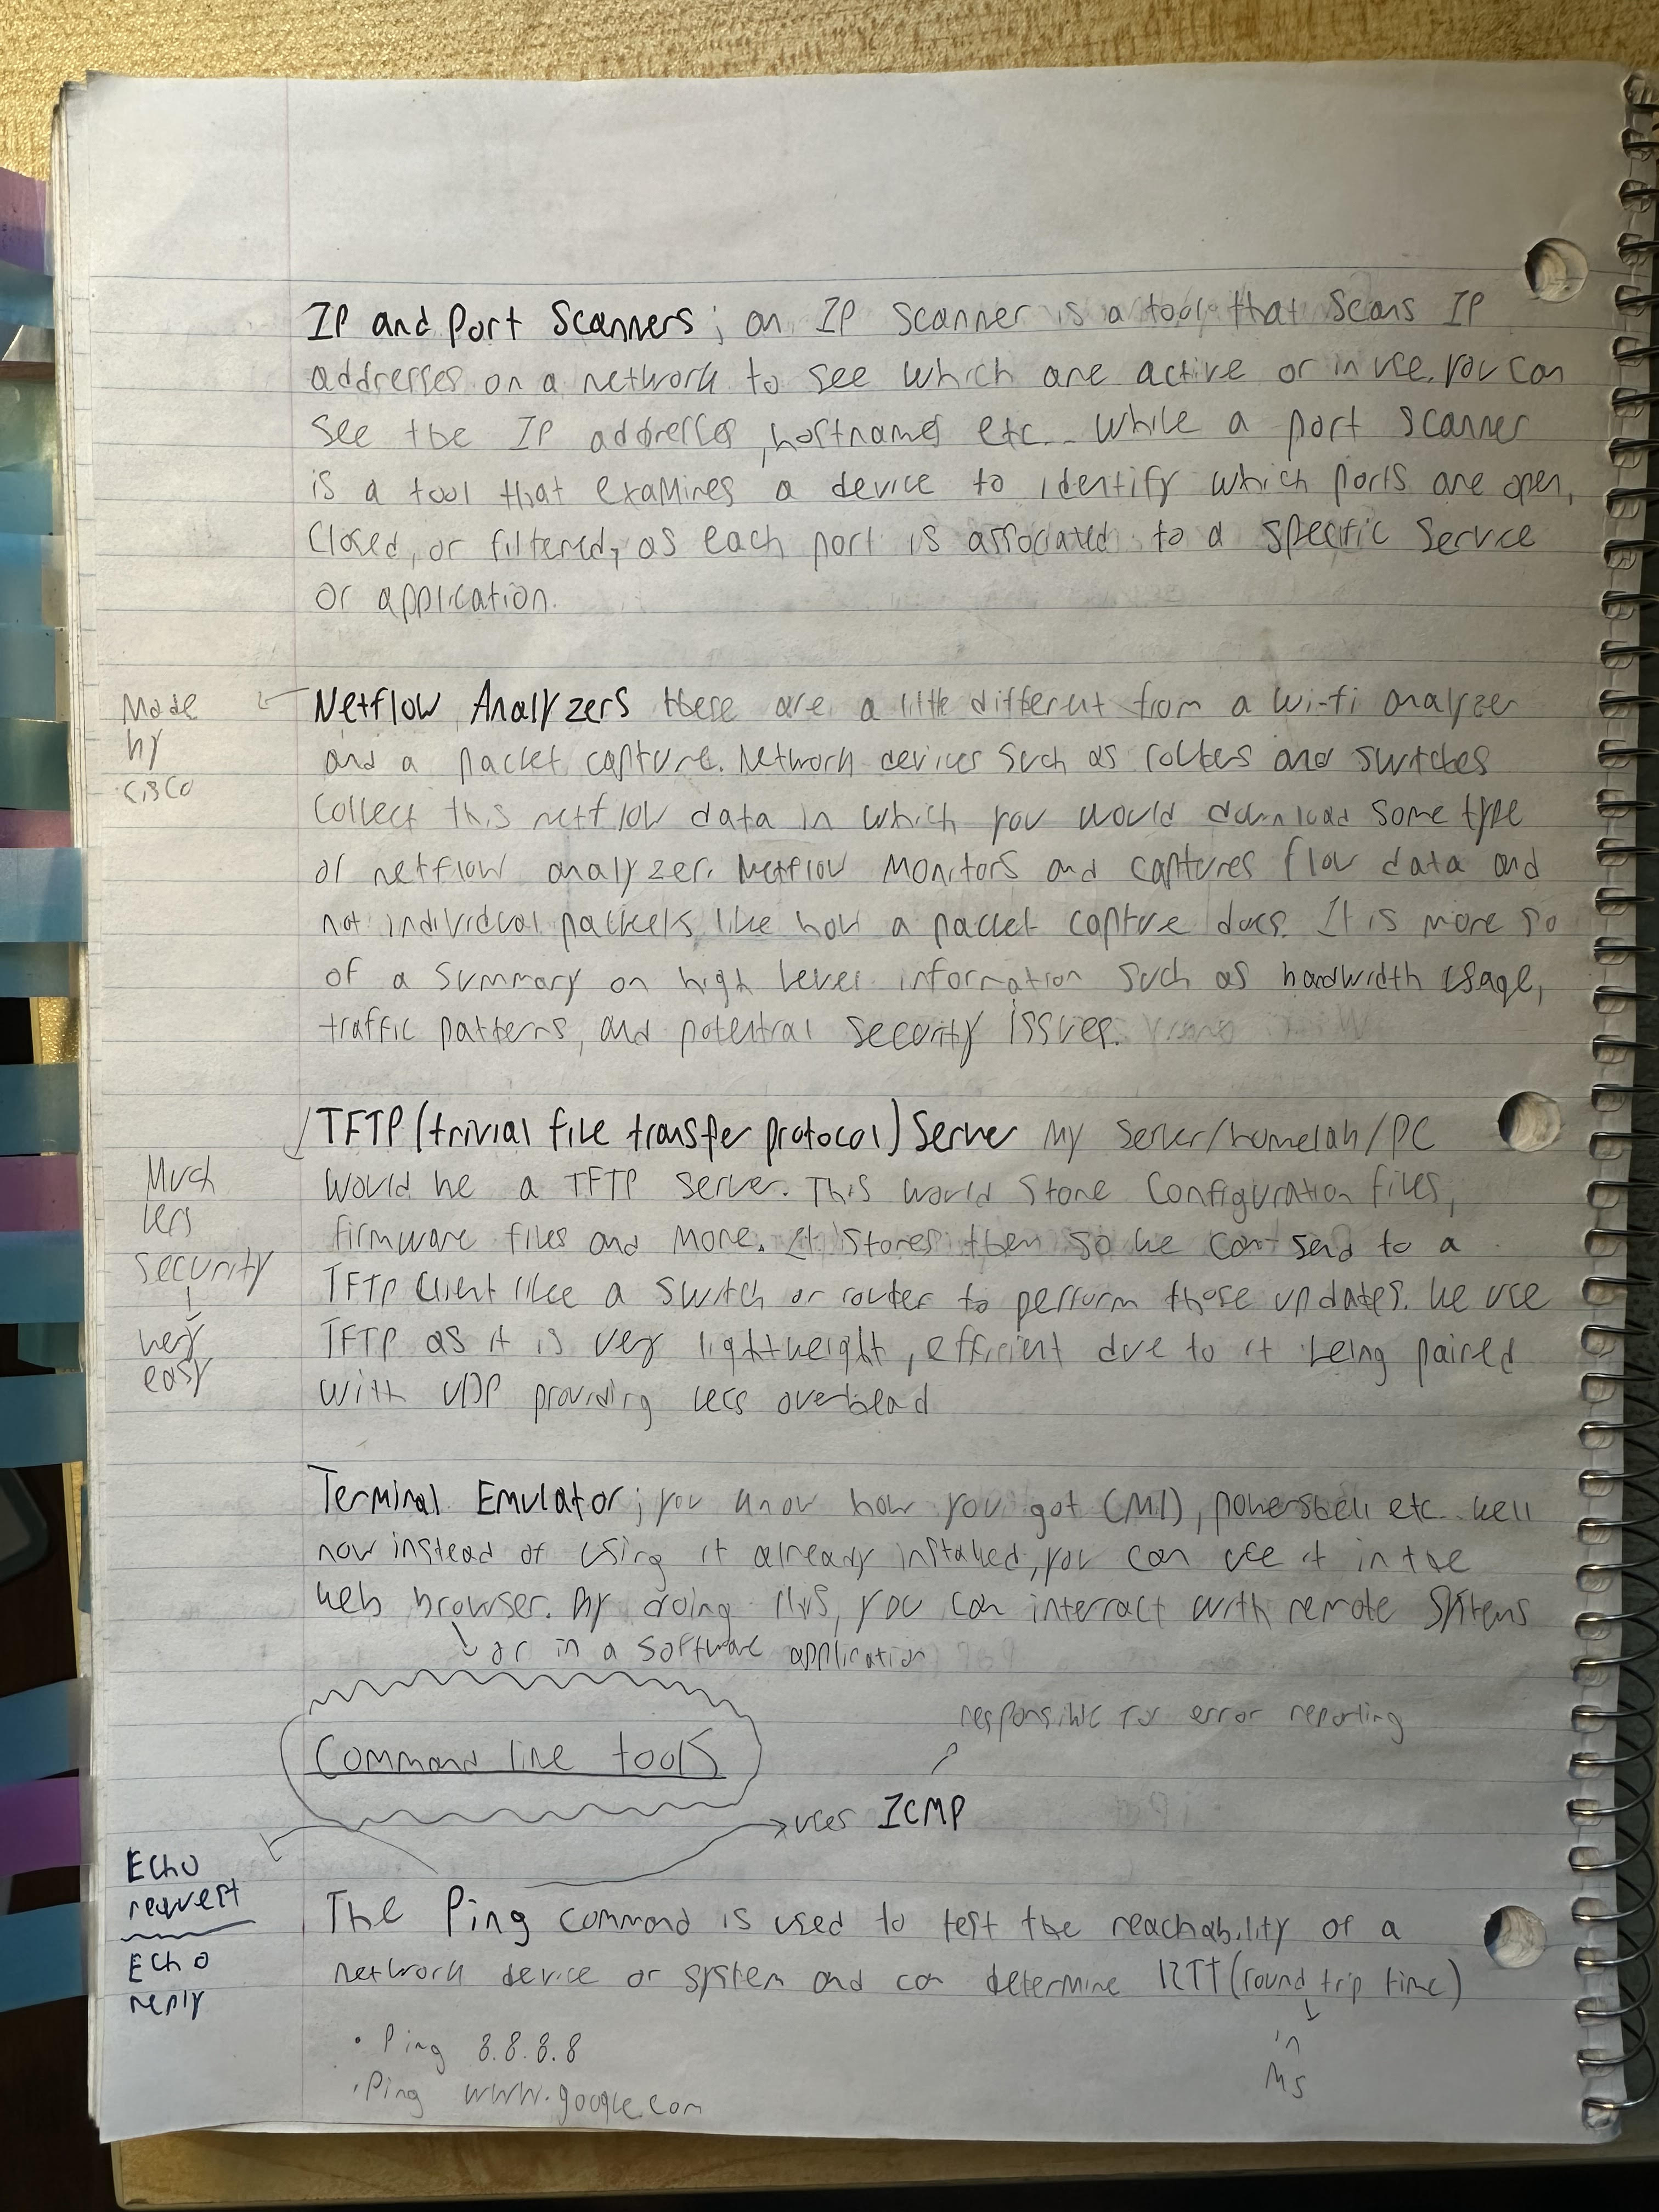 IP and Port Scanners; an IP scanner is a tool that scans IP
addresses on a network to see which are active or in use. you can
see the IP addresses, hostnames etc.. while a port scanner
is a tool that examines a device to identify which ports are open,
closed, or filtered, as each port is associated to a specific service
or application.
Made
by
cisco
Netflow Analyzers these are a little different from a wi-fi analyzer
and a packet capture. Network devices such as routers and switches
collect this netflow data in which you would download some type
of netflow analyzer. Netflow monitors and captures flow data and
not individual packets like how a packet capture does. It is more so
of a summary on high level information such as bandwidth usage,
traffic patterns, and potential security issues.
TFTP (trivial file transfer protocol) Server my server/homelab/PC
would be a TFTP server. This would store configuration files,
firmware files and more. It stores them so we can send to a
TFTP client like a switch or router to perform those updates. we use
TFTP as it is very lightweight, efficient due to it being paired
with UDP providing less overhead
Much
less
security
very
easy
Terminal Emulator; you know how you got CMD, powershell etc.. well
now instead of using it already installed, you can use it in the
web browser. By doing this, you can interract with remote systems
or in a software application
responsible for error reporting
Command line tools
uses ICMP
Echo
request
Echo
reply
The Ping command is used to test the reachability of a
network device or system and can determine RTT (round trip time)
in
ms
• Ping 8.8.8.8
• Ping www.google.com